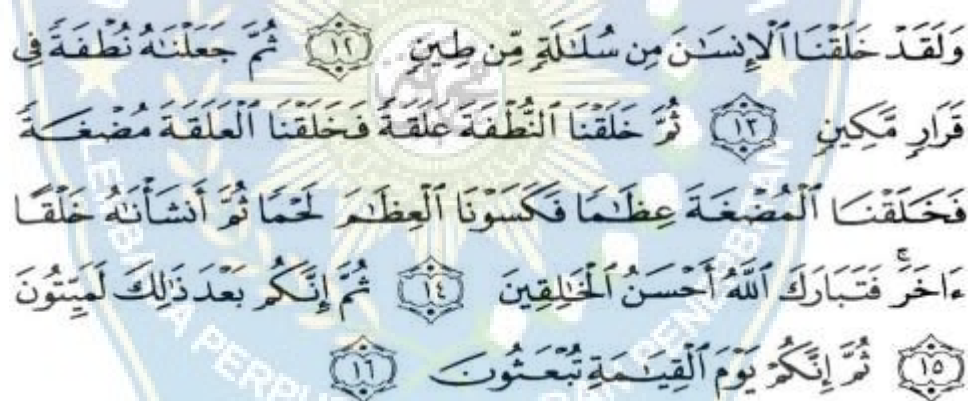 وَلَقَدْ خَلَقْنَا ٱلْإِنسَٰنَ مِن سُلَٰلَةٍ مِّن طِينٍ ١٢ ثُمَّ جَعَلْنَٰهُ نُطْفَةً فِى
قَرَارٍ مَّكِينٍ ١٣ ثُمَّ خَلَقْنَا ٱلنُّطْفَةَ عَلَقَةً فَخَلَقْنَا ٱلْعَلَقَةَ مُضْغَةً
فَخَلَقْنَا ٱلْمُضْغَةَ عِظَٰمًا فَكَسَوْنَا ٱلْعِظَٰمَ لَحْمًا ثُمَّ أَنشَأْنَٰهُ خَلْقًا
ءَاخَرَ ۚ فَتَبَارَكَ ٱللَّهُ أَحْسَنُ ٱلْخَٰلِقِينَ ١٤ ثُمَّ إِنَّكُم بَعْدَ ذَٰلِكَ لَمَيِّتُونَ
١٥ ثُمَّ إِنَّكُمْ يَوْمَ ٱلْقِيَٰمَةِ تُبْعَثُونَ ١٦